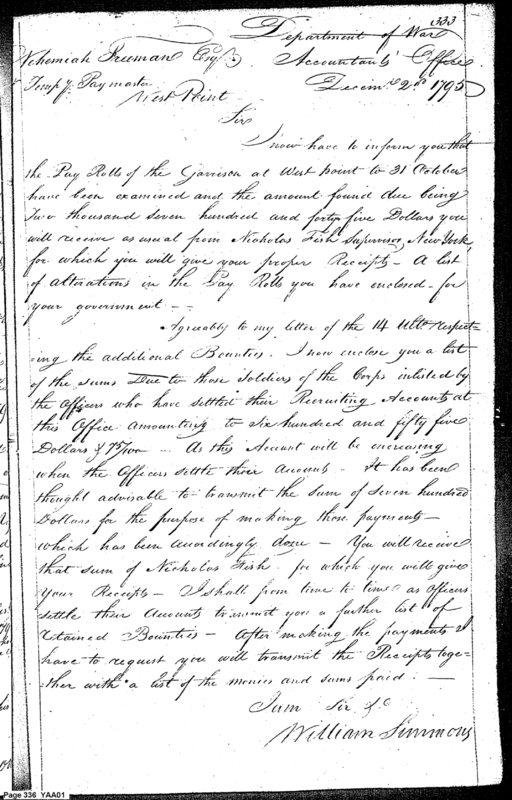 333
Department of War
Nehemiah Freeman Esqr. Accountants' Office
Tempy. Paymaster Decemr. 2nd 1795
West Point
Sir
I now have to inform you that
the Pay Rolls of the Garrison at West point to 31 October
have been examined and the amount found due being
Two thousand seven hundred and forty five Dollars you
will receive as usual from Nicholas Fish Supervisor, New York,
for which you will give your proper Receipts - A list
of alterations in the Pay Rolls you have enclosed - for
your government - -
Agreably to my letter of the 14 Ulto. respect-
ing the additional Bounties. I now enclose you a list
of the sums Due to those Soldiers of the Corps inlisted by
the Officers who have settled their Recruiting Accounts at
this Office amounting to six hundred and fifty five
Dollars & 75/100 - As this Account will be increasing
when the Officers settle their Accounts - It has been
thought advisable to transmit the sum of seven hundred
Dollars for the purpose of making those payments -
which has been accordingly done - You will receive
that sum of Nicholas Fish for which you will give
your Receipts - I shall from time to time as Officers
settle their Accounts transmit you a further list of
retained Bounties - After making the payments I
have to request you will transmit the Receipts toge-
ther with a list of the monies and sums paid. -
I am Sir &c
William Simmons
Page 336 YAA01